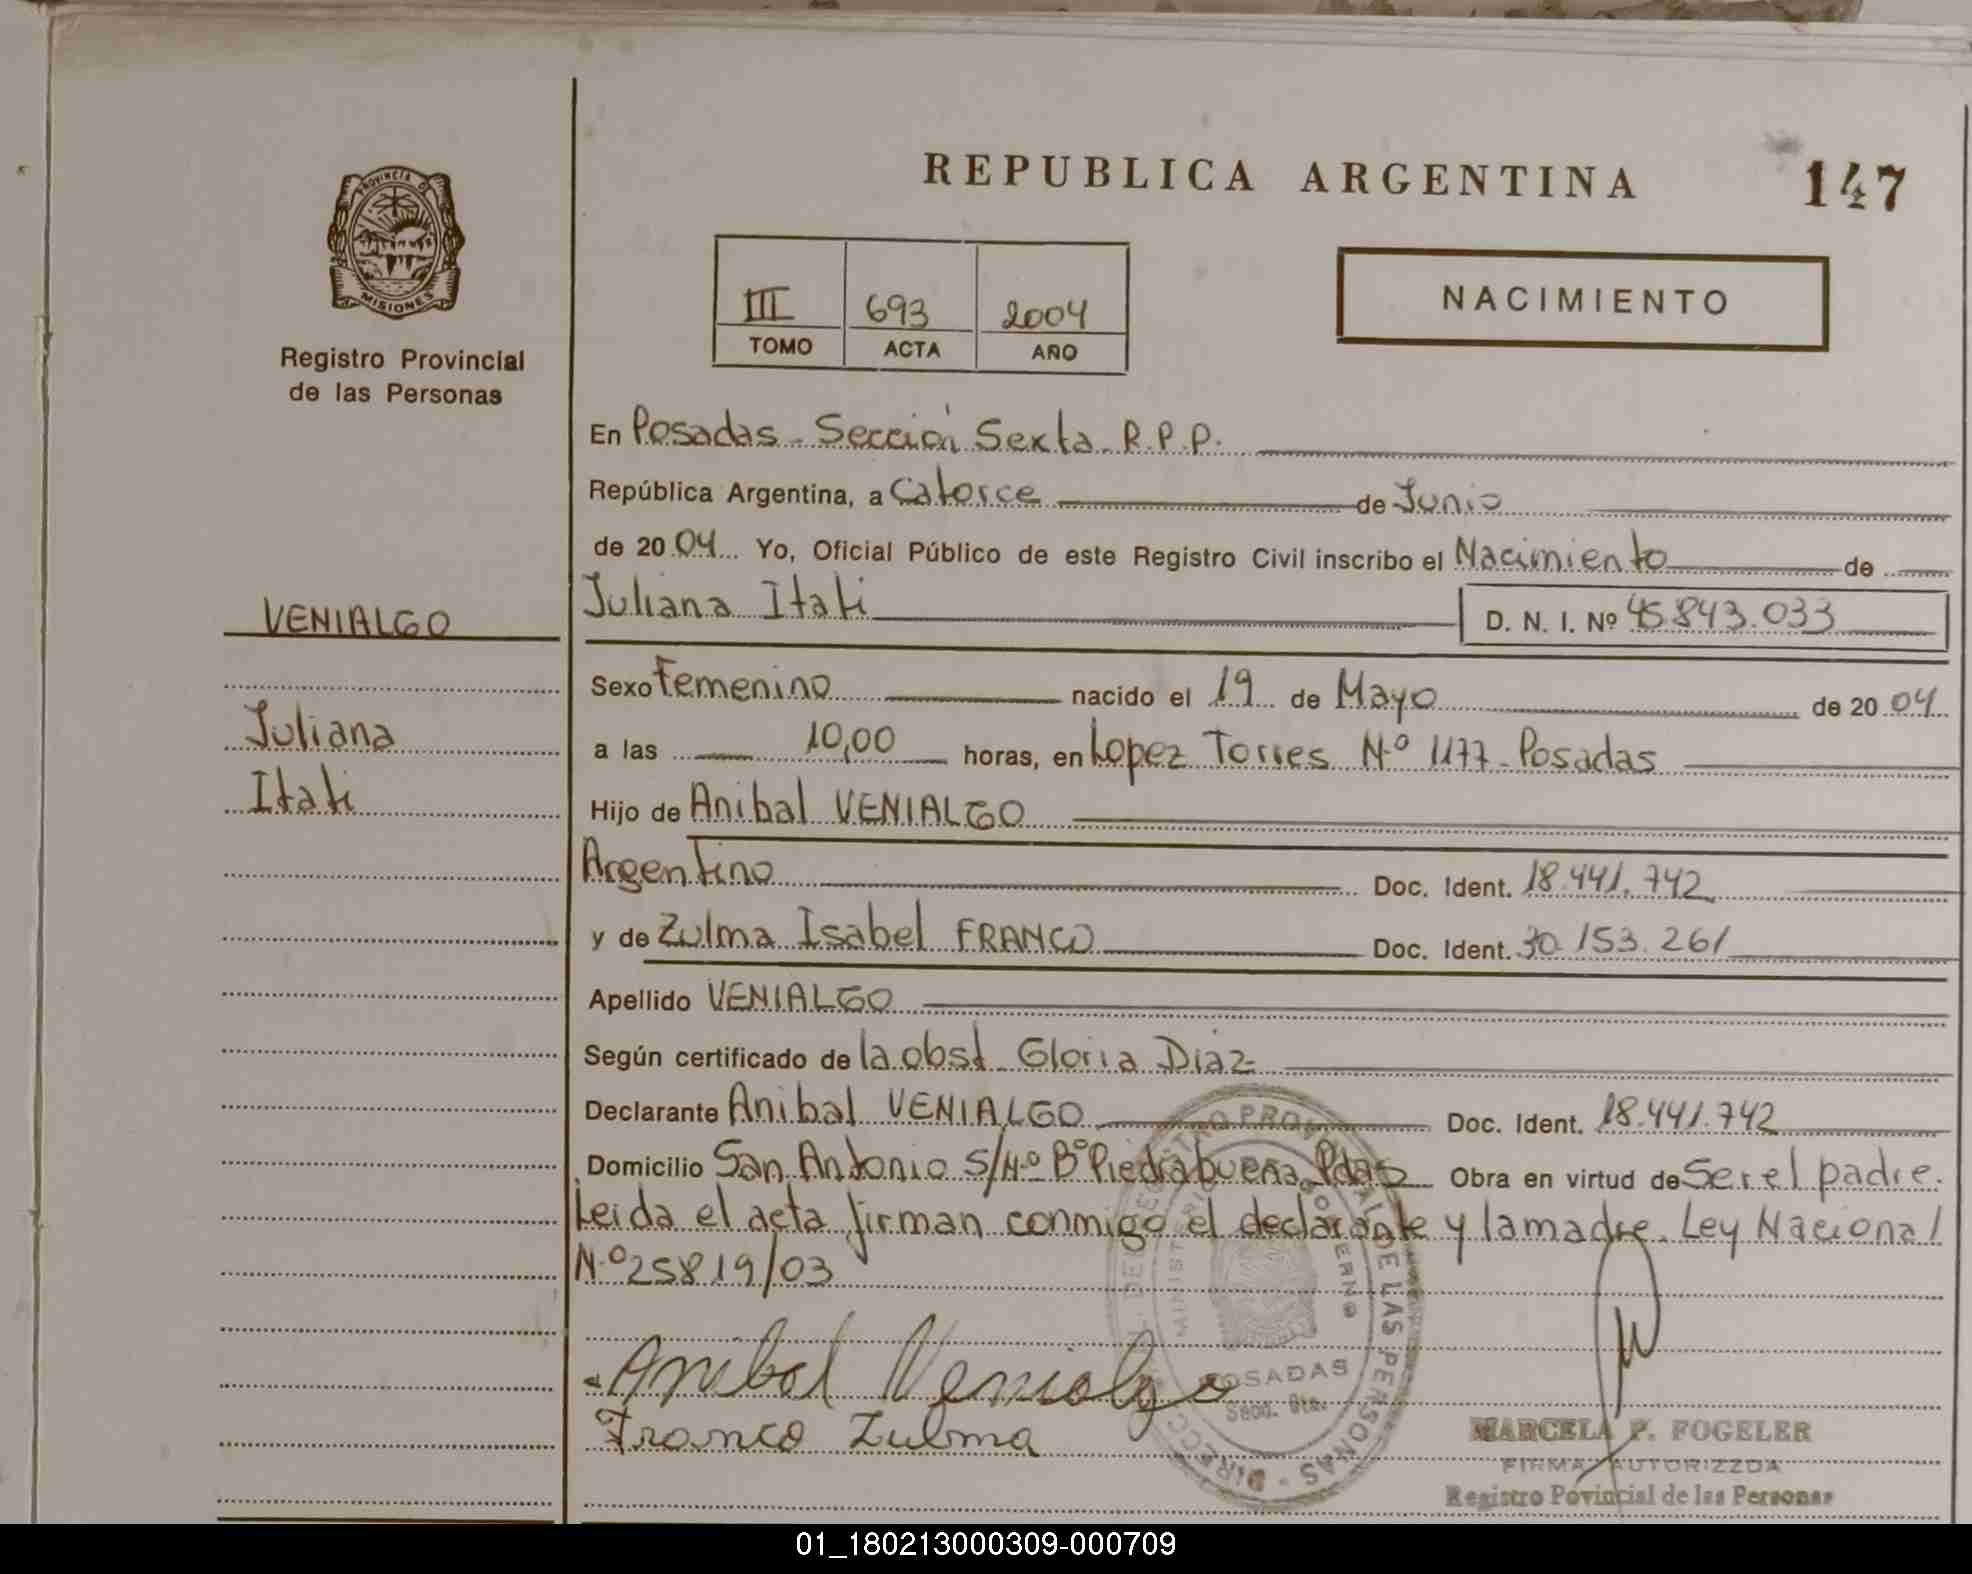 REPUBLICA ARGENTINA
147
PROVINCIA DE
MISIONES
Registro Provincial
de las Personas
NACIMIENTO
III 693 2004
TOMO ACTA AÑO
En Posadas - Sección Sexta - R.P.P.
República Argentina, a Catorce de Junio
de 20 04 Yo, Oficial Público de este Registro Civil inscribo el Nacimiento de
Juliana Itati D. N. I. Nº 45.843.033
VENIALGO
Juliana
Itati
Sexo Femenino nacido el 19 de Mayo de 20 04
a las 10,00 horas, en Lopez Torres N.º 1177 - Posadas
Hijo de Anibal VENIALGO
Argentino Doc. Ident. 18.441.742
y de Zulma Isabel FRANCO Doc. Ident. 30.153.261
Apellido VENIALGO
Según certificado de la obst. Gloria Diaz
Declarante Anibal VENIALGO Doc. Ident. 18.441.742
Domicilio San Antonio S/N.º Bº Piedrabuena Pdas Obra en virtud de Ser el padre.
Leida el acta firman conmigo el declarante y la madre. Ley Nacional
N.º 25819/03
Anibal Venialgo
Franco Zulma
POSADAS
Secc. 6ta.
MARCELA P. FOGELER
FIRMA AUTORIZZDA
Registro Povincial de las Personas
01_180213000309-000709